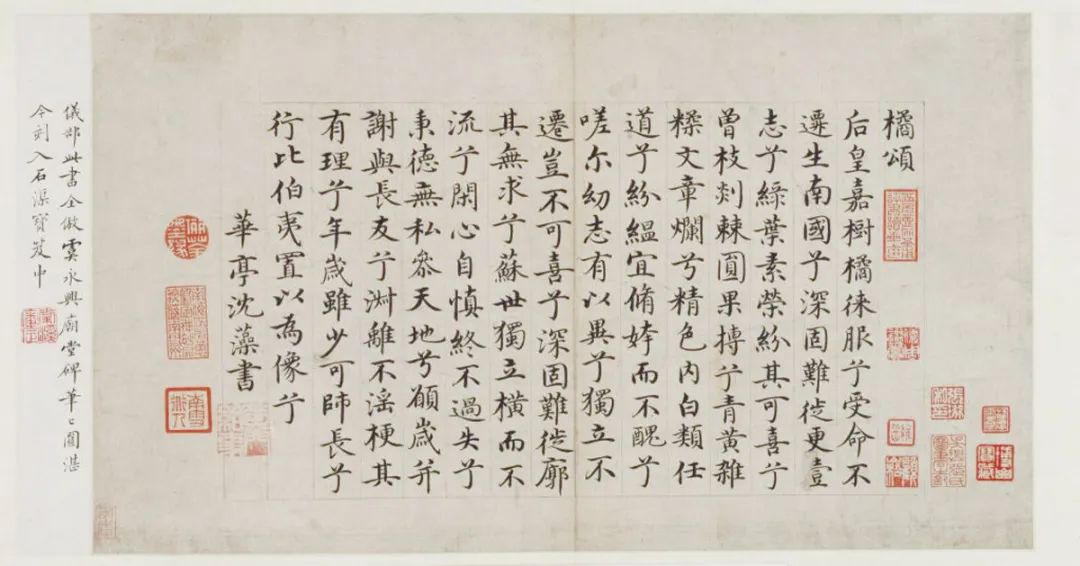 橘頌
后皇嘉樹橘徠服兮受命不
遷生南國兮深固難徙更壹
志兮綠葉素榮紛其可喜兮
曾枝剡棘圓果摶兮青黃雜
糅文章爛兮精色內白類任
道兮紛緼宜脩姱而不醜兮
嗟尓幼志有以異兮獨立不
遷豈不可喜兮深固難徙廓
其無求兮蘇世獨立橫而不
流兮閑心自慎終不過失兮
秉德無私叅天地兮願歲并
謝與長友兮淑離不淫梗其
有理兮年歲雖少可師長兮
行比伯夷置以為像兮
華亭沈藻書
儀部此書全倣虞永興廟堂碑筆〻圓湛
令刻入石渠寶笈中